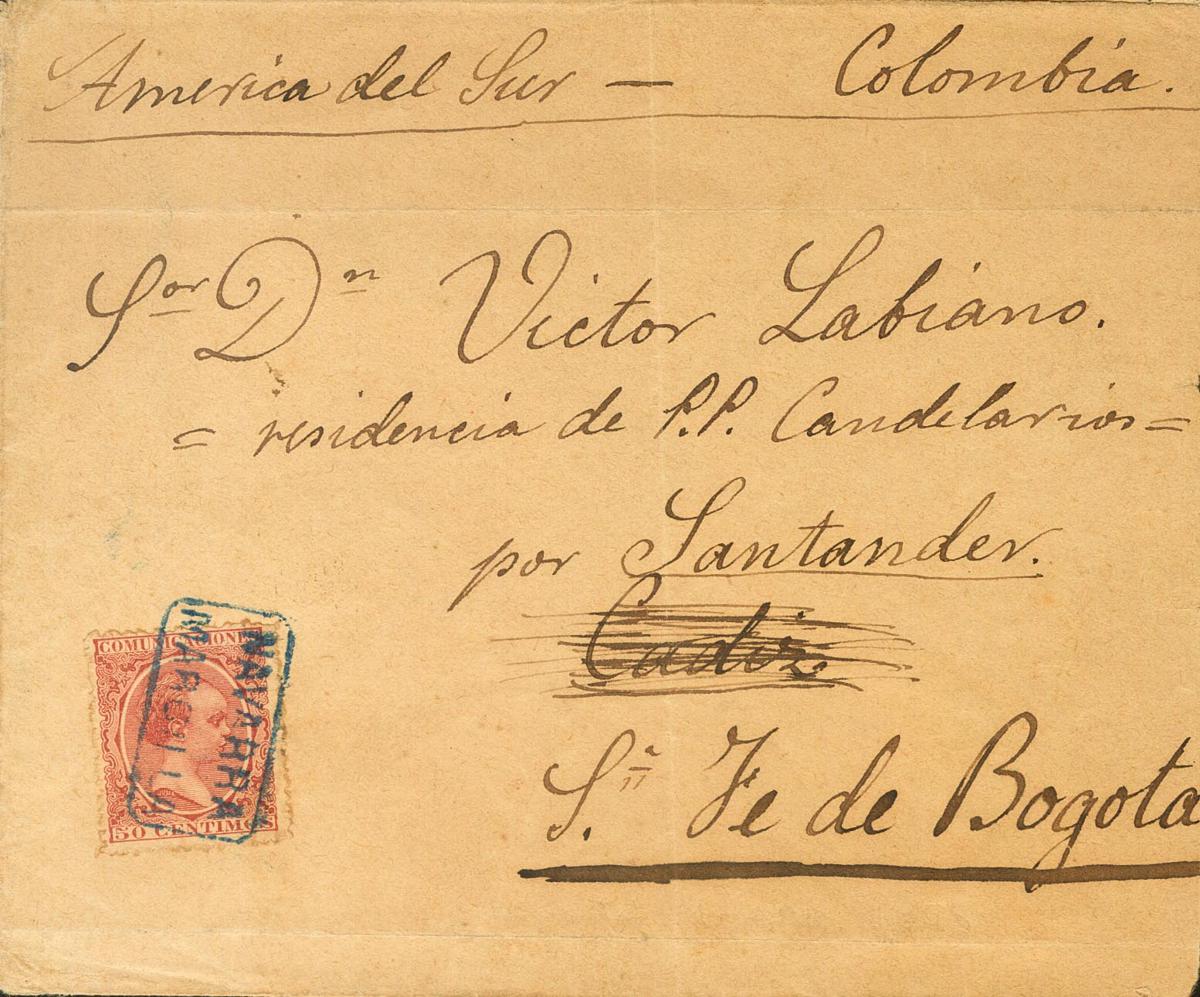 America del Sur — Colombia.
Sor Dn Victor Labiano.
= residencia de P.P. Candelarios =
por Santander.
Cadiz
S.ª Fe de Bogota
COMUNICACIONES
50 CENTIMOS
NAVARRA
MARCILLA